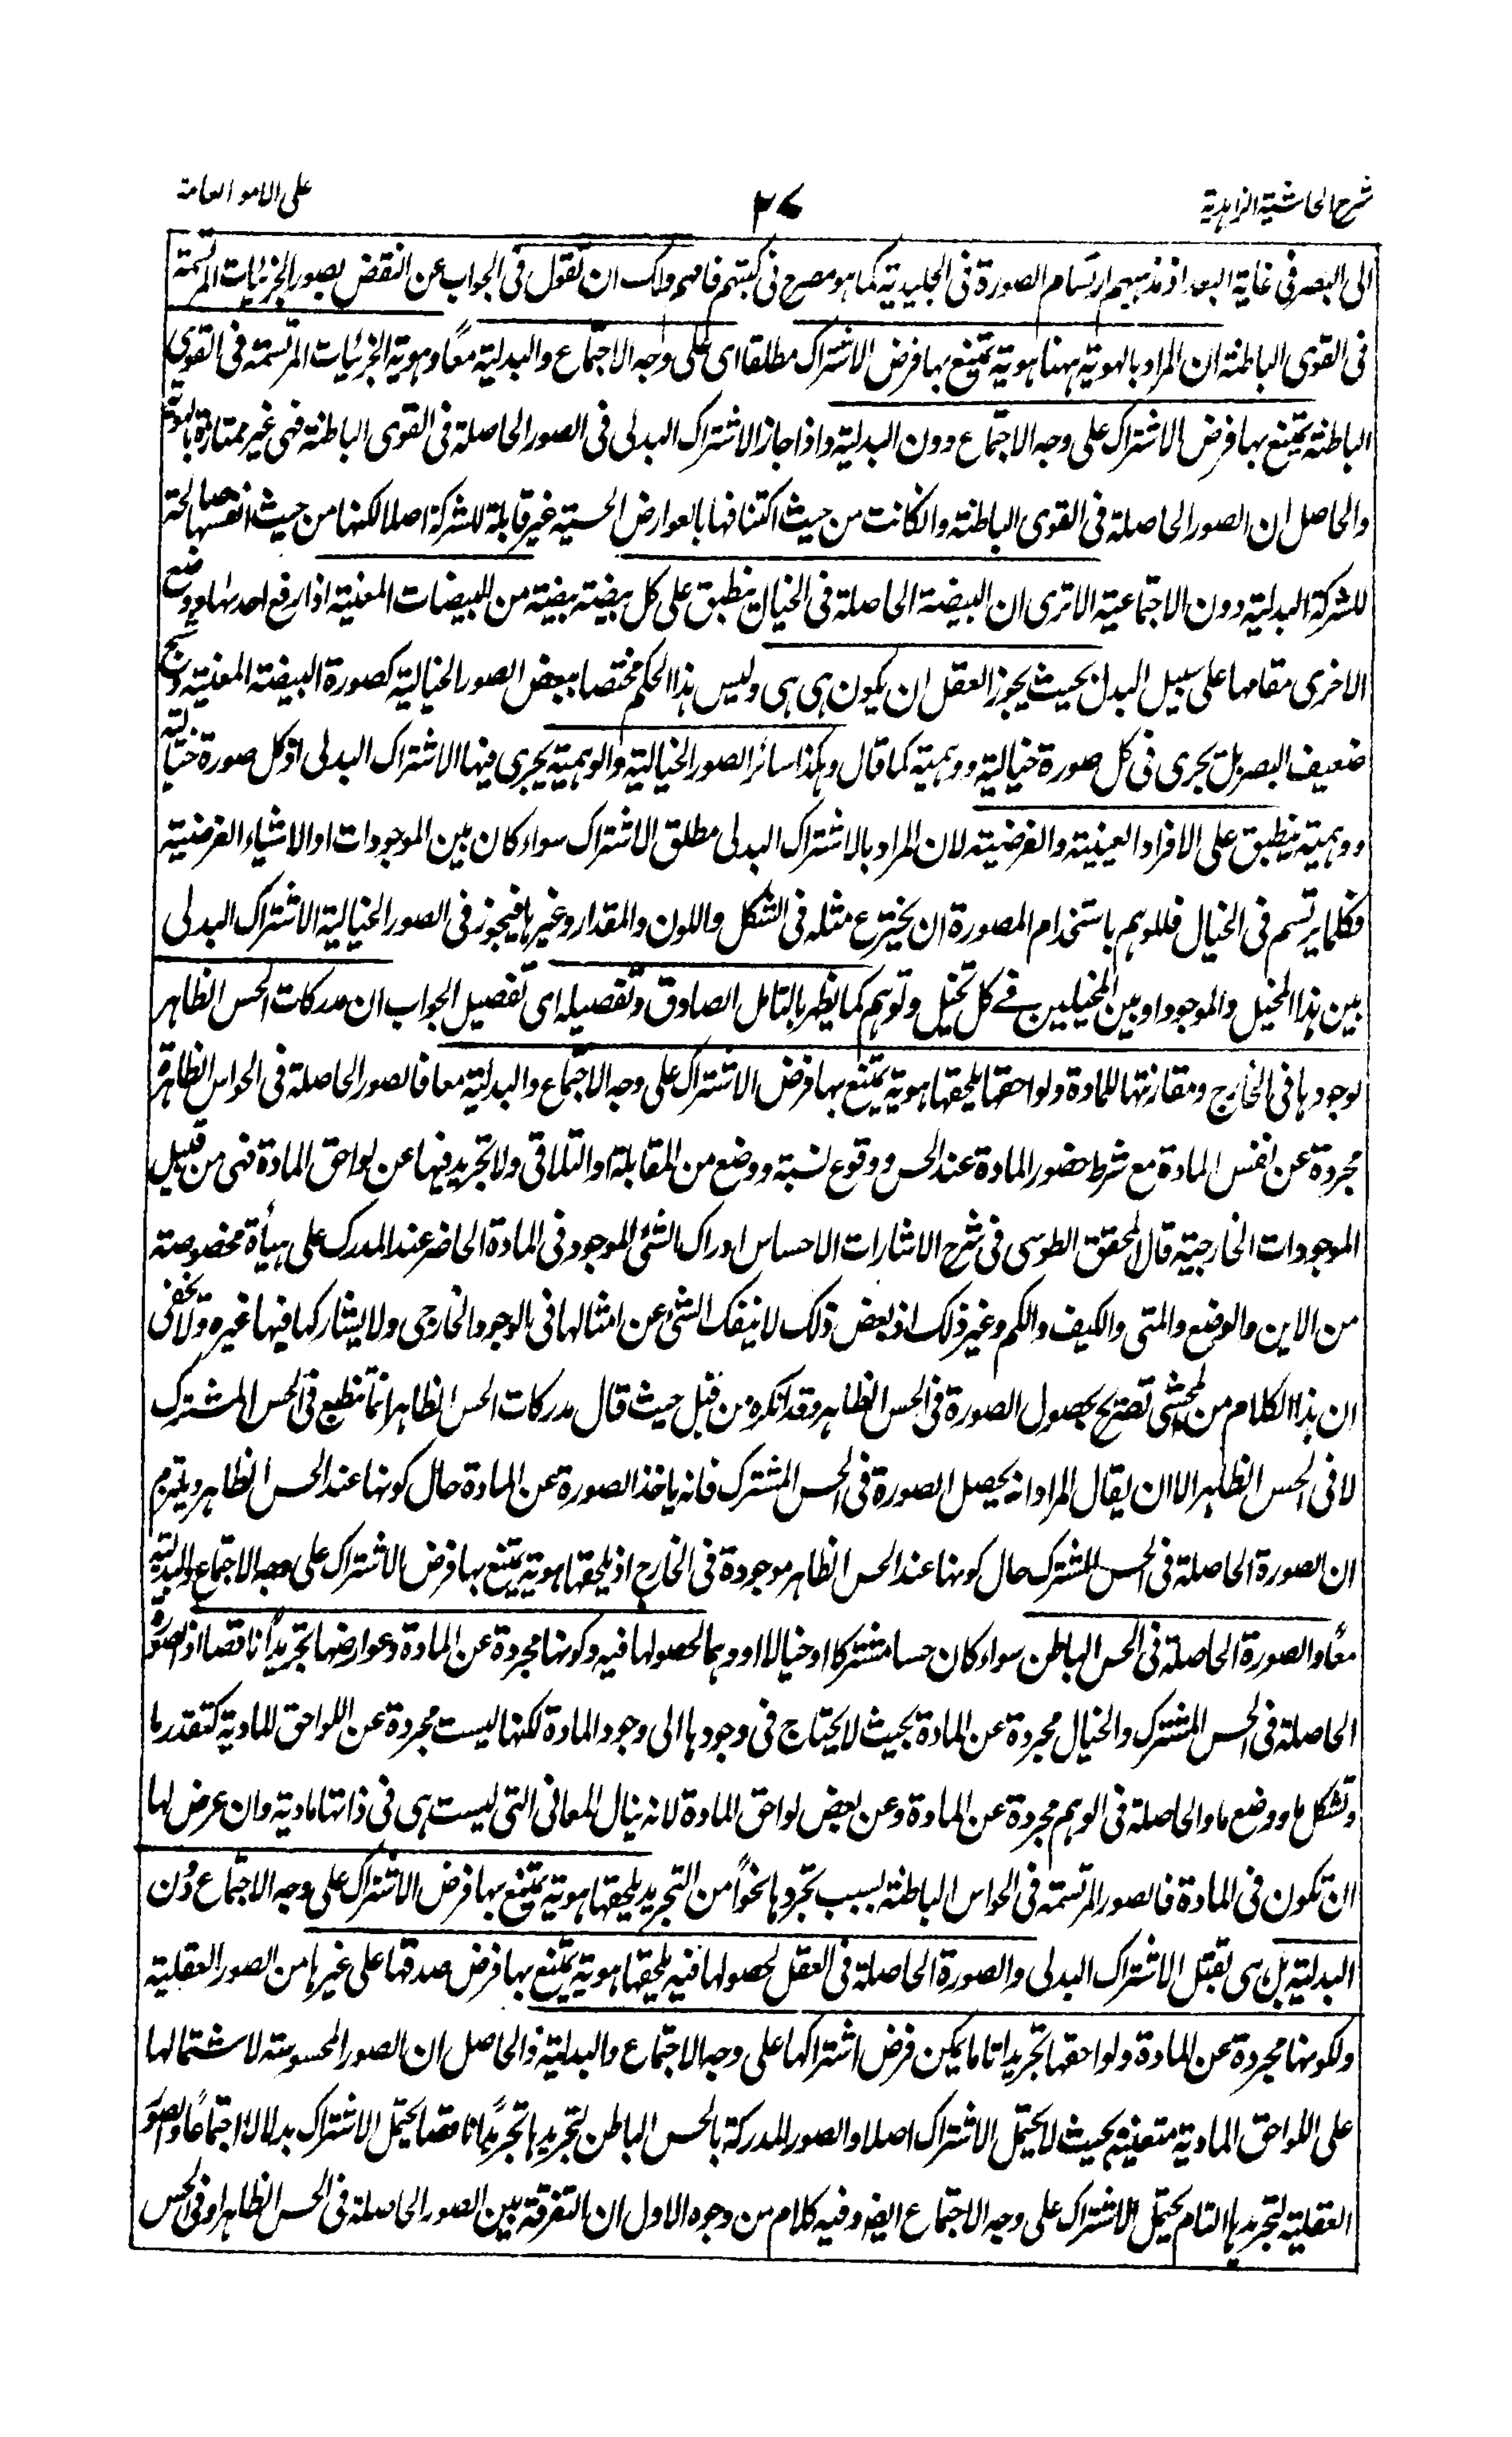 شرح الحاشية الزاهدية
٢٧
على الامور العامة
الى البصر فى غاية البعد اذ مذهبهم ارتسام الصورة فى الجليدية كما هو مصرح فى كتبهم فافهم ولك ان تقول فى الجواب عن النقض بصور الجزئيات المرتسمة
فى القوى الباطنة ان المراد بالهوية ههنا هوية يمتنع بها فرض الاشتراك مطلقا اى على وجه الاجتماع والبدلية معًا وهوية الجزئيات المرتسمة فى القوى
الباطنة يمتنع بها فرض الاشتراك على وجه الاجتماع دون البدلية واذا جاز الاشتراك البدلى فى الصور الحاصلة فى القوى الباطنة فهى غير ممتازة بالهوية
والحاصل ان الصور الحاصلة فى القوى الباطنة وان كانت من حيث اكتنافها بالعوارض الحسية غير قابلة للشركة اصلا لكنها من حيث انفسها صالحة
للشركة البدلية دون الاجتماعية الا ترى ان البيضة الحاصلة فى الخيال ينطبق على كل بيضة بيضة من البيضات المعنية اذا رفع احدىها ووضع
الاخرى مقامها على سبيل البدل بحيث يجوز العقل ان يكون هى هى وليس هذا الحكم مختصا ببعض الصور الخيالية كصورة البيضة المعنية وشبح
ضعيف البصر بل يجرى فى كل صورة خيالية ووهمية كما قال وهكذا سائر الصور الخيالية والوهمية يجرى فيها الاشتراك البدلى اذ كل صورة خيالية
ووهمية ينطبق على الافراد العينية والفرضية لان المراد بالاشتراك البدلى مطلق الاشتراك سواء كان بين الموجودات او الاشياء الفرضية
فكلما يرتسم فى الخيال فللوهم باستخدام المصورة ان يخترع مثله فى الشكل واللون والمقدار وغيرها فيجوز فى الصور الخيالية الاشتراك البدلى
بين هذا المخيل والموجود او بين المخيلين فى كل تخيل وتوهم كما يظهر بالتامل الصادق وتفصيله اى تفصيل الجواب ان مدركات الحس الظاهر
لوجودها فى الخارج ومقارنتها للمادة ولواحقها يلحقها هوية يمتنع بها فرض الاشتراك على وجه الاجتماع والبدلية معا فالصور الحاصلة فى الحواس الظاهرة
مجردة عن نفس المادة مع شرط حضور المادة عند الحس ووقوع نسبة ووضع من المقابلة او التلاقى ولا تجريد فيها عن لواحق المادة فهى من قبيل
الموجودات الخارجية قال المحقق الطوسى فى شرح الاشارات الاحساس ادراك الشئ الموجود فى المادة الحاضر عند المدرك على هيأة مخصوصة
من الاين والوضع والمتى والكيف والكم وغير ذلك اذ بعض ذلك لا ينفك الشئ عن امثالها فى الوجود الخارجى ولا يشاركها فيها غيره ولا يخفى
ان هذا الكلام من المحشى تصريح بحصول الصورة فى الحس الظاهر وقد انكره من قبل حيث قال مدركات الحس الظاهر انما تنطبع فى الحس المشترك
لا فى الحس الظاهر الا ان يقال المراد انه يحصل الصورة فى الحس المشترك فانه ياخذ الصورة عن المادة حال كونها عند الحس الظاهر ويلتزم
ان الصورة الحاصلة فى الحس المشترك حال كونها عند الحس الظاهر موجودة فى الخارج اذ يلحقها هوية يمتنع بها فرض الاشتراك على وجه الاجتماع والبدلية
معًا والصورة الحاصلة فى الحس الباطن سواء كان حسا مشتركا او خيالا او وهما لحصولها فيه وكونها مجردة عن المادة وعوارضها تجريدًا ناقصا اذ الصورة
الحاصلة فى الحس المشترك والخيال مجردة عن المادة بحيث لا يحتاج فى وجودها الى وجود المادة لكنها ليست مجردة عن اللواحق المادية كتقدر ما
وتشكل ما ووضع ما والحاصلة فى الوهم مجردة عن المادة وعن بعض لواحق المادة لانه ينال المعانى التى ليست هى فى ذاتها مادية وان عرض لها
ان تكون فى المادة فالصور المرتسمة فى الحواس الباطنة بسبب تجردها نحوًا من التجريد يلحقها هوية يمتنع بها فرض الاشتراك على وجه الاجتماع دون
البدلية بل هى تقبل الاشتراك البدلى والصورة الحاصلة فى العقل لحصولها فيه يلحقها هوية يمتنع بها فرض صدقها على غيرها من الصور العقلية
ولكونها مجردة عن المادة ولواحقها تجريدا تاما يمكن فرض اشتراكها على وجه الاجتماع والبدلية والحاصل ان الصور المحسوسة لاشتمالها
على اللواحق المادية متعينة بحيث لا يحتمل الاشتراك اصلا والصور المدركة بالحس الباطن لتجريدها تجريدًا ناقصا يحتمل الاشتراك بدلا لا اجتماعًا والصور
العقلية لتجريدها التام يحتمل الاشتراك على وجه الاجتماع ايضا وفيه كلام من وجوه الاول ان التفرقة بين الصور الحاصلة فى الحس الظاهر او فى الحس